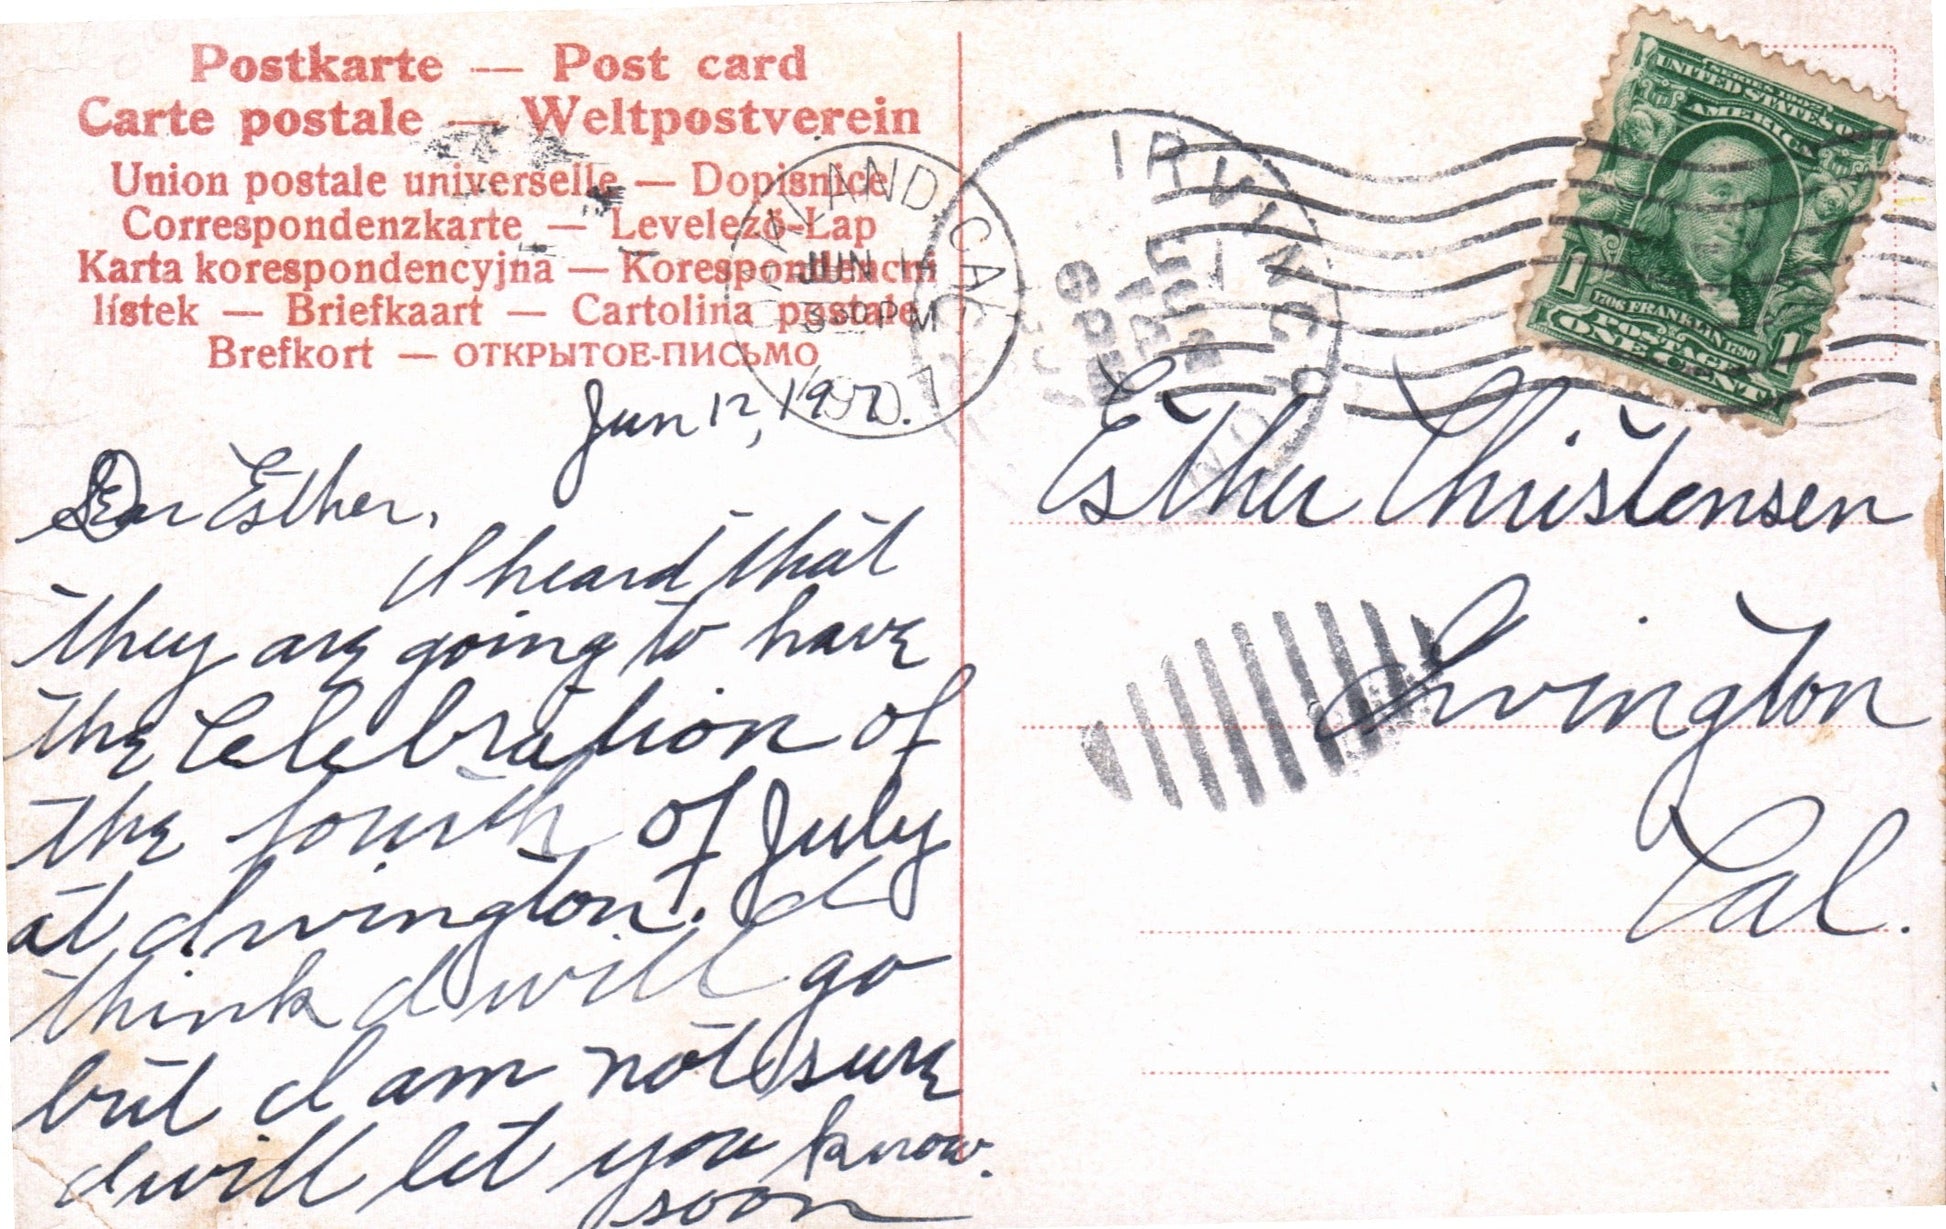 Postkarte — Post card
Carte postale — Weltpostverein
Union postale universelle — Dopisnice
Correspondenzkarte — Levelező-Lap
Karta korespondencyjna — Korespondenční
lístek — Briefkaart — Cartolina postale
Brefkort — ОТКРЫТОЕ-ПИСЬМО
OAKLAND, CAL.
JUN
3 30 PM
1907
Jun 12, 1907.
Dear Esther,
I heard that
they are going to have
the Celebration of
the fourth of July
at Irvington. I
think I will go
but I am not sure
I will let you know.
soon
IRVINGTON
SERIES 1902
UNITED STATES OF
AMERICA
1 1
1706 FRANKLIN 1790
POSTAGE
ONE CENT
Esther Christensen
Irvington
Cal.